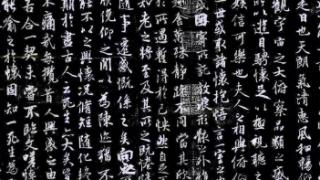 日也天朗氣清惠風和暢
觀宇宙之大俯察品類之
以遊目騁懷足以極視聽
娛信可樂也夫人之相與俯仰
一世或取諸懷抱悟言一室之
因寄所託放浪形骸之外
趣舍萬殊靜躁不同當其欣
於所遇暫得於己怏然自
知老之將至及其所之既惓
隨事遷感慨係之矣向
俛仰之間以為陳跡猶不
能不以之興懷況脩短隨化終
期於盡古人云死生亦大矣豈
不痛哉每攬昔人興感之由
若合一契未嘗不臨文嗟悼
能喻之於懷固知一死生